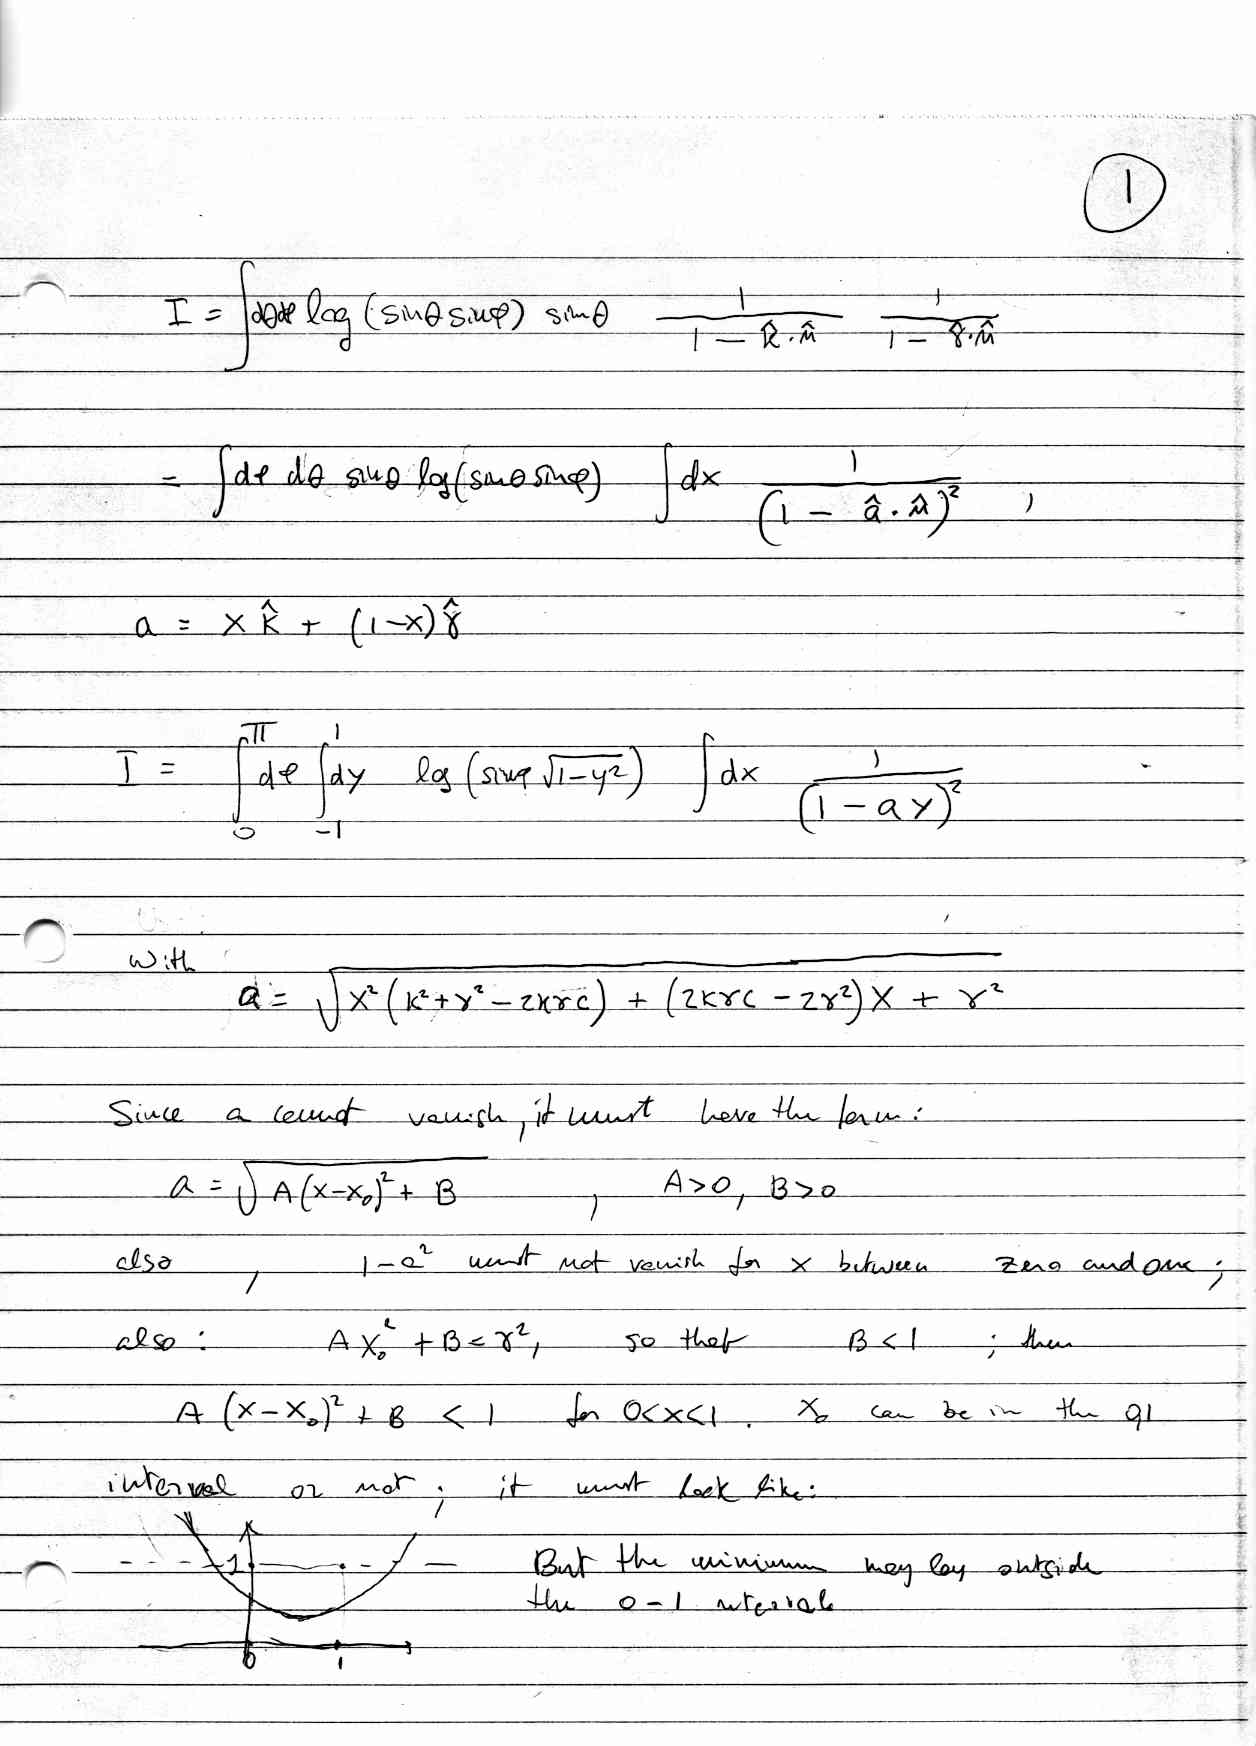 1
I = ∫dθdφ log (sinθ sinφ) sinθ 1/(1 − k̂·n̂) 1/(1 − γ̂·n̂)
= ∫dφ dθ sinθ log(sinθ sinφ) ∫dx 1/(1 − â·n̂)² ,
a = x k̂ + (1−x) γ̂
I = ∫₀^π dφ ∫₋₁^1 dy log (sinφ √(1−y²)) ∫dx 1/(1 − a y)²
With
a = √(x² (k²+γ² − 2kγc) + (2kγc − 2γ²) x + γ²)
Since a cannot vanish, it must have the form:
a = √(A(x−x₀)² + B) , A>0, B>0
also , 1−a² must not vanish for x between zero and one ;
also : A x₀² + B = γ², so that B < 1 ; then
A (x−x₀)² + B < 1 for 0<x<1. x₀ can be in the 01
interval or not ; it must look like:
1 But the minimum may lay outside
the 0–1 interval
0 1